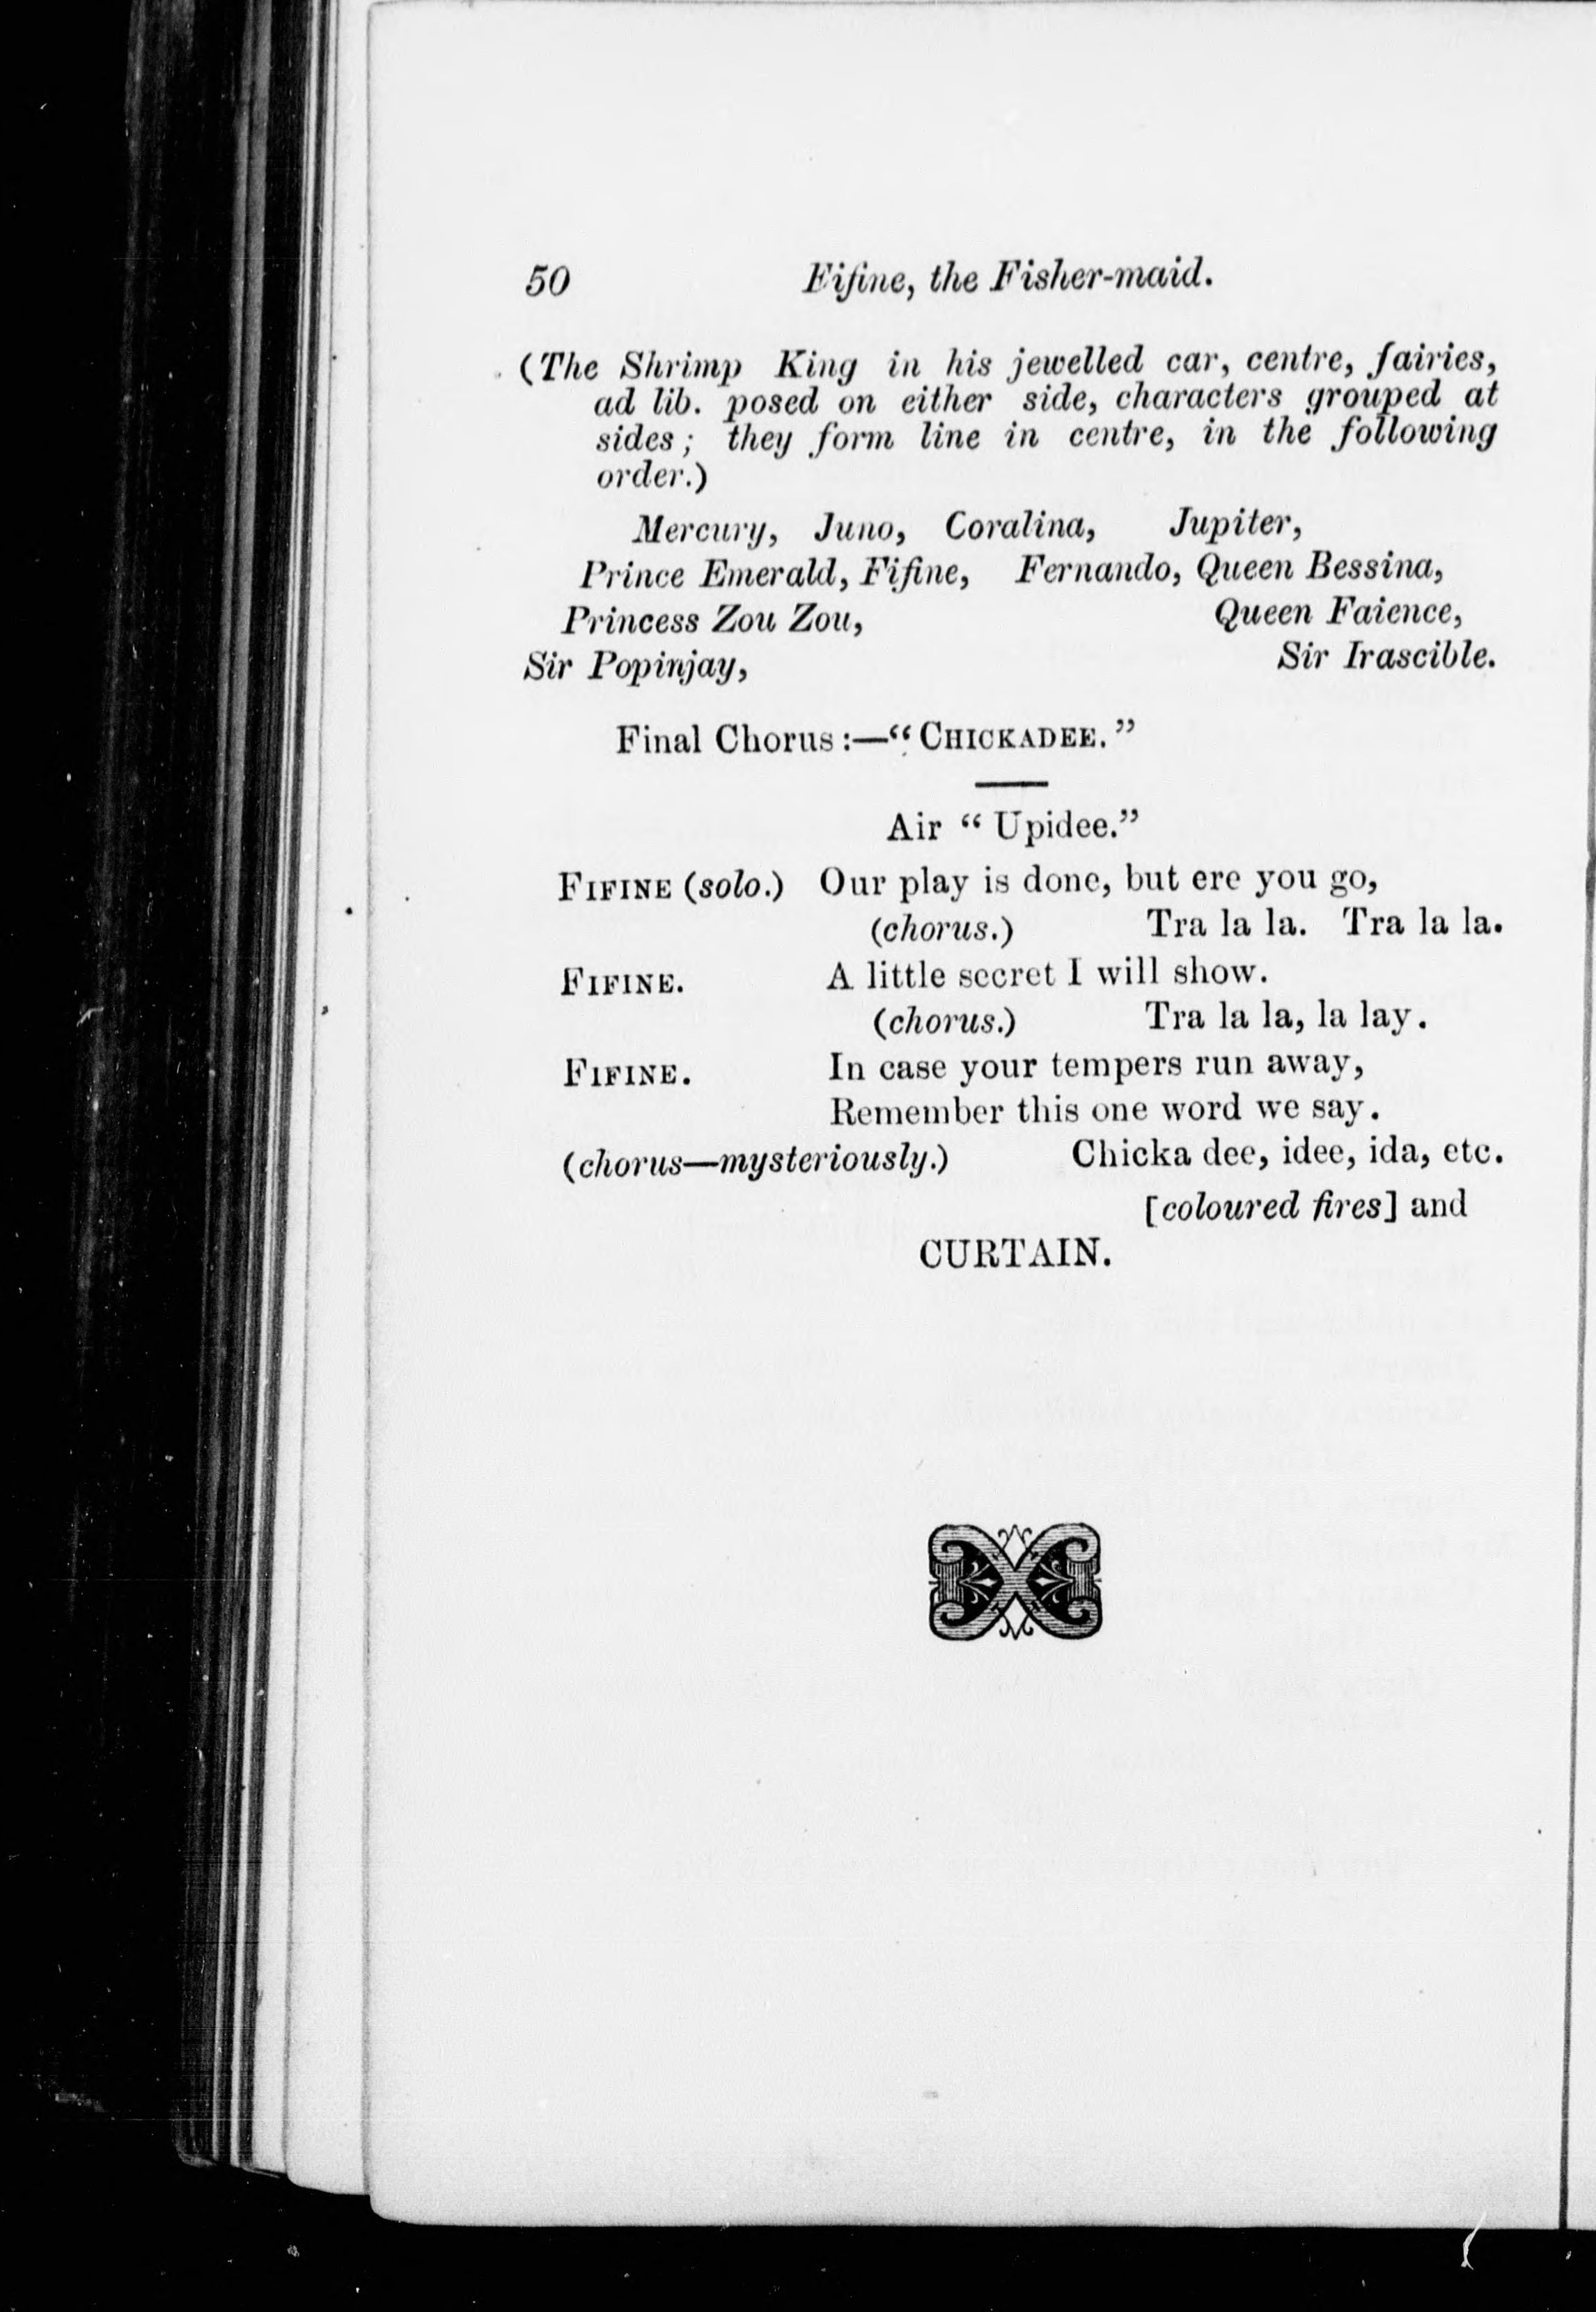 50 Fifine, the Fisher-maid.
(The Shrimp King in his jewelled car, centre, fairies,
ad lib. posed on either side, characters grouped at
sides; they form line in centre, in the following
order.)
Mercury, Juno, Coralina, Jupiter,
Prince Emerald, Fifine, Fernando, Queen Bessina,
Princess Zou Zou, Queen Faience,
Sir Popinjay, Sir Irascible.
Final Chorus:—"CHICKADEE."
Air "Upidee."
FIFINE (solo.) Our play is done, but ere you go,
(chorus.) Tra la la. Tra la la.
FIFINE. A little secret I will show.
(chorus.) Tra la la, la lay.
FIFINE. In case your tempers run away,
Remember this one word we say.
(chorus—mysteriously.) Chicka dee, idee, ida, etc.
[coloured fires] and
CURTAIN.